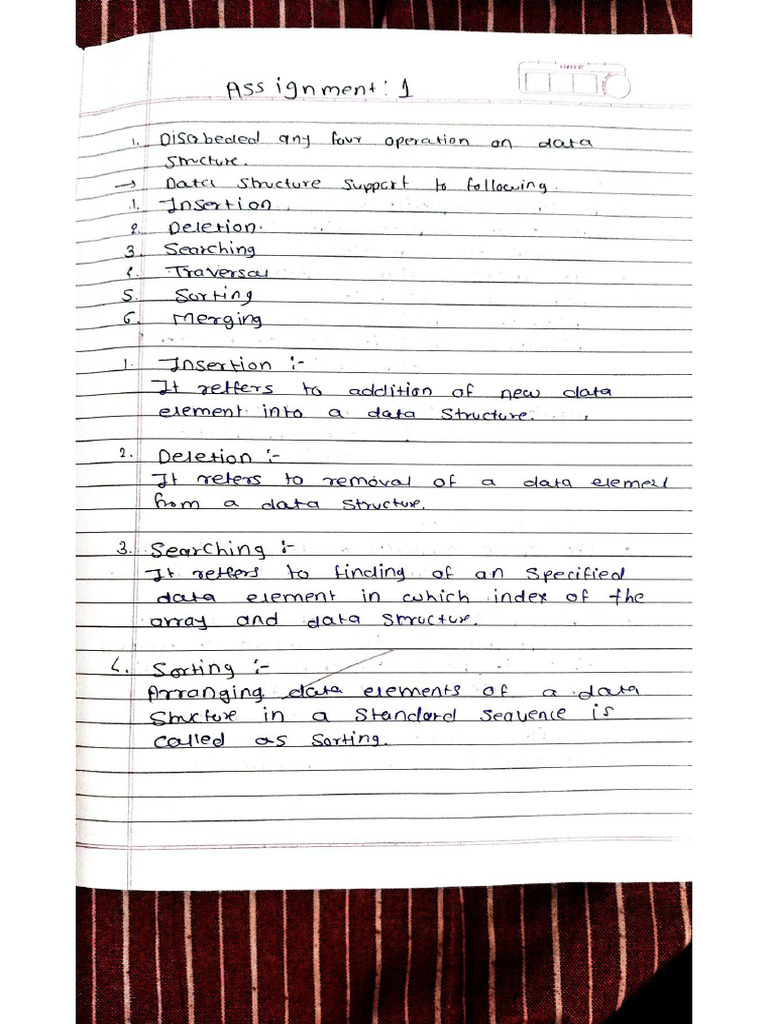 DATE
Assignment: 1
1. Disabeded any four operation on data
structure.
→ Data structure support to following.
1. Insertion
2. Deletion.
3. Searching
4. Traversal
5. Sorting
6. Merging
1. Insertion :-
It reffers to addition of new data
element into a data structure.
2. Deletion :-
It refers to removal of a data element
from a data structure.
3. Searching :-
It reffers to finding of an specified
data element in which index of the
array and data structure.
4. Sorting :-
Arranging data elements of a data
structure in a standard sequence is
called as sorting.